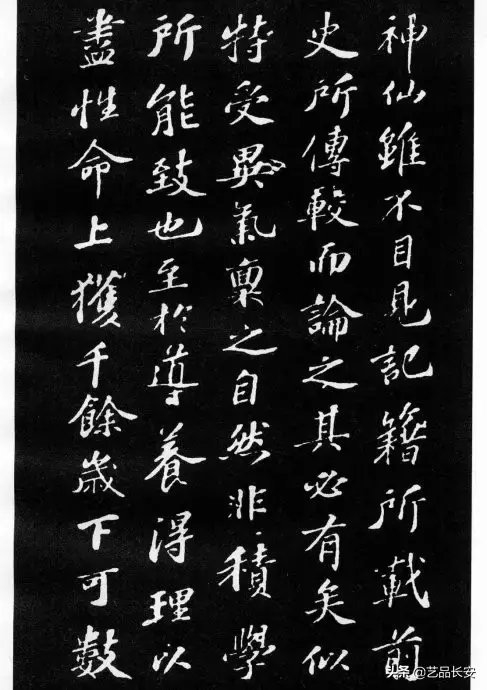 神仙雖不目見記籍所載前
史所傳較而論之其必有矣似
特受異氣稟之自然非積學
所能致也至於導養得理以
盡性命上獲千餘歲下可數
头条 @艺品长安